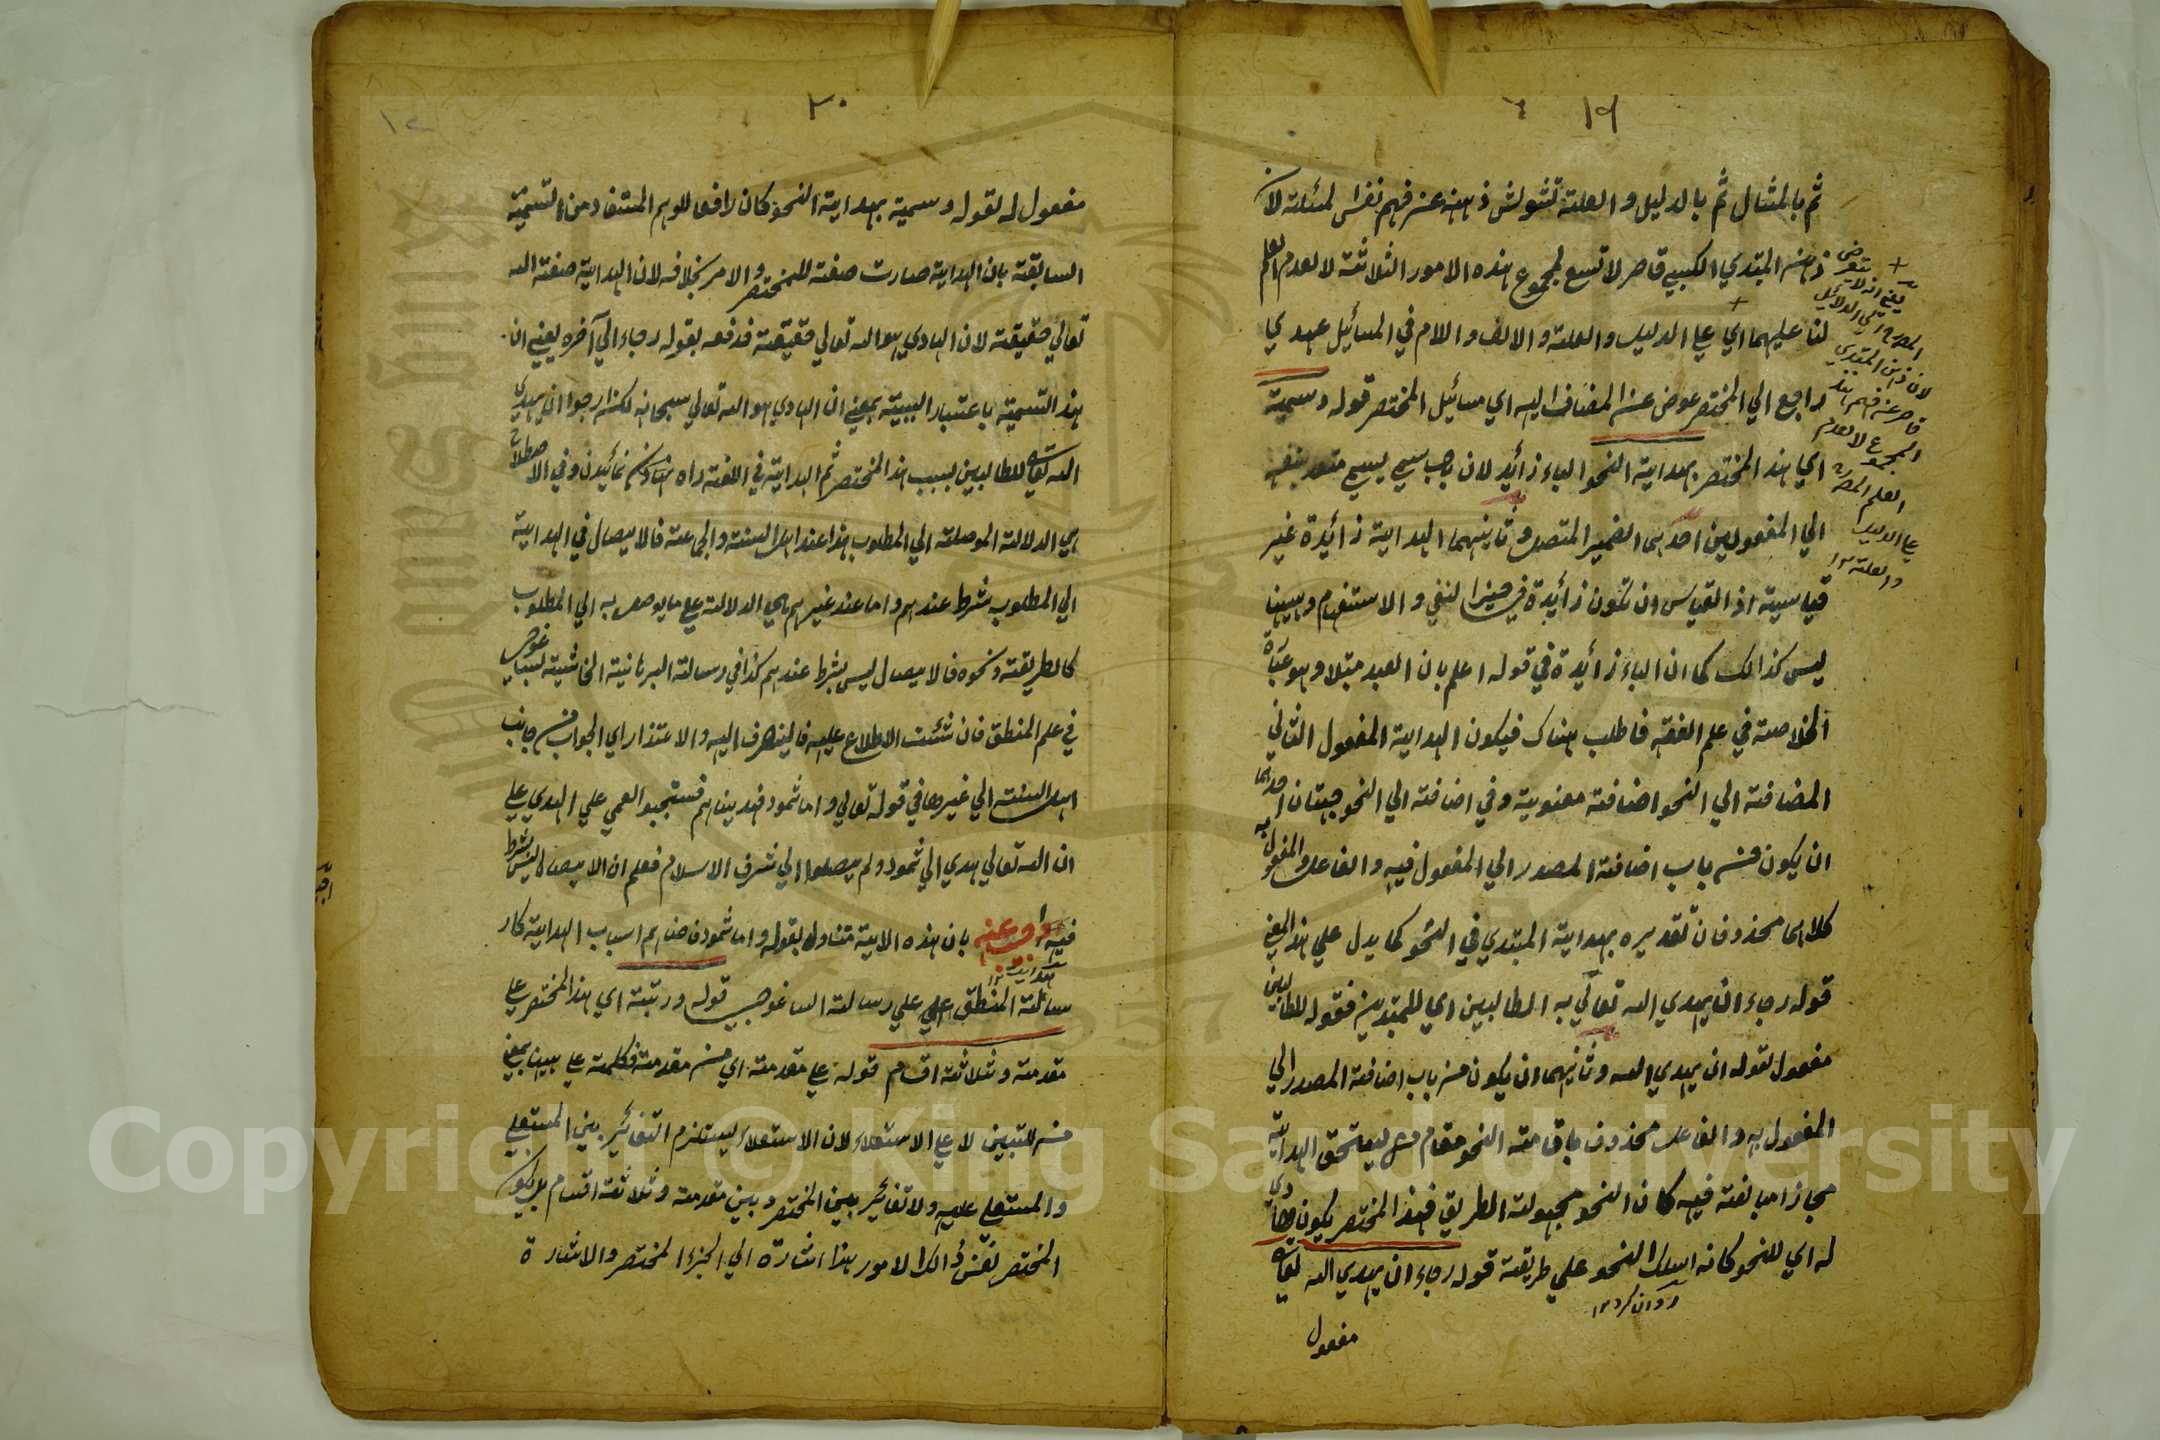 ١٩
ثم بالمثال ثم بالدليل والعلة تشوش ذهنه عن فهم نفس المسئلة لان
ذهن المبتدي الكسبي قاصر لا تسع لمجموع هذه الامور الثلاثة لا لعدم العلم
لنا عليهما اي علي الدليل والعلة والالف واللام في المسائيل عهدي
راجع الي المختصر عوض عن المضاف اليه اي مسائيل المختصر قوله وسميته
اي هذا المختصر بهداية النحو الباء زائد لان باب سمي يسمي متعد بنفسه
الي المفعولين احدهما الضمير المتصل وثانيهما الهداية زائيدة غير
قياسية اذ القياس ان تكون زائيدة في حيز النفي والاستفهام وهيهنا
ليس كذالك كما ان الباء زائيدة في قوله اعلم بان العبد مبتلا وهو عبارة
الخلاصة في علم الفقه فاطلب هناك فيكون الهداية المفعول الثاني
المضافة الي النحو اضافة معنوية وفي اضافته الي النحو جهتان احدهما
ان يكون من باب اضافة المصدر الي المفعول فيه والفاعل والمفعول به
كلاهما محذوفان تقديره بهداية المبتدي في النحو كما يدل علي هذا المعني
قوله رجاء ان يهدي الله تعالي به الطالبين اي للمبتدين فقوله للطالبين
مفعول لقوله ان يهدي الله وثانيهما ان يكون من باب اضافة المصدر الي
المفعول به والفاعل محذوف باقامة النحو مقام من يستحق الهداية
مجازا مبالغة فيه كان النحو مجهولة الطريق فهذا المختصر يكون هاديا
له اي للنحو كانه اسلك النحو علي طريقة قوله رجاء ان يهدي الله تعالي
روان كرد ١٢
مفعول
يعني انه لا يتعرض
المصـ الي الدلائل
لان ذهن المبتدي
قاصر عن فهم هذه
المجموع لا لعدم
العلم المصـ
علي الدليل
والعلة ١٢
٢٠
مفعول له لقوله وسميته بهداية النحو كان رافعا للوهم المستفاد من التسمية
السابقة بان الهداية صارت صفة للمختصر والامر بخلافه لان الهداية صفة الله
تعالي حقيقة لان الهادي هو الله تعالي حقيقة فدفعه بقوله رجاء الي آخره يعني ان
هذا التسمية باعتبار السببية بمعني ان الهادي هو الله تعالي سبحانه لكنه ارجوا ان يهدي
الله تعالي للطالبين بسبب هذا المختصر ثم الهداية في اللغة راه نمائيدن وفي الاصطلاح
هي الدلالة الموصلة الي المطلوب هذا عند اهل السنة والجماعة فالايصال في الهداية
الي المطلوب شرط عندهم واما عند غيرهم هي الدلالة علي ما يوصل به الي المطلوب
كالطريقة ونحوه فالايصال ليس بشرط عندهم كذا في رسالة البرهانية الحاشية لايساغوجي
في علم المنطق فان شئت الاطلاع عليه فالينصرف اليه والاعتذار اي الجواب من جانب
اهل السنة الي غيرها في قوله تعالي واما ثمود فهديناهم فستحبوا العمي علي الهدي علي
ان الله تعالي هدي الي ثمود ولم يصلوا الي شرف الاسلام فعلم ان الايصال ليس بشرط
فيه واجيب عنه بان هذه الاية متناول بقوله واما ثمود فهيناهم اسباب الهداية كار
سالة المنطق اعني علي رسالة ايساغوجي قوله ورتبته اي هذا المختصر علي
مقدمة وثلاثة اقسام قوله علي مقدمة اي من مقدمة فكلمة علي ههنا بمعني
من للتبين لا علي الاستعلاء لان الاستعلاء يستلزم التغائير بين المستعلي
والمستعلي عليه ولا تغائير بين المختصر وبين مقدمة وثلاثة اقسام بل يكون
المختصر نفس ذالك الامور هذا اشارة الي الجزاء المختصر والاشارة
Copyright © King Saud University